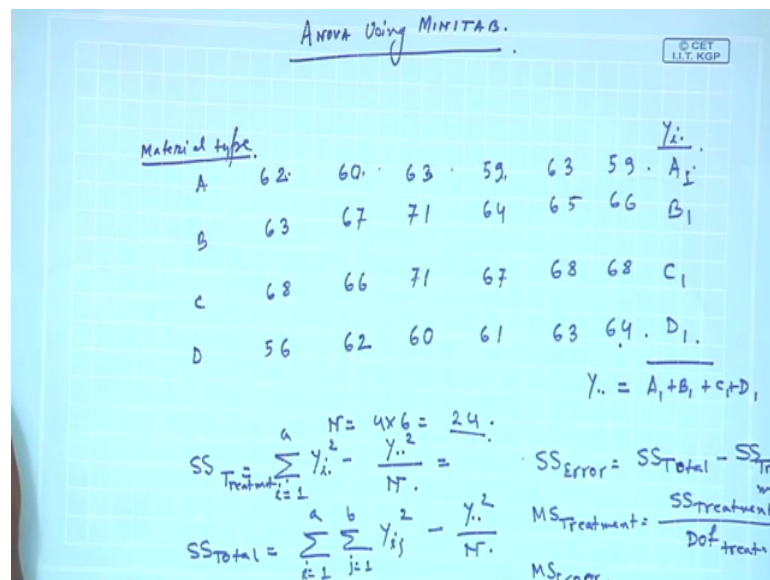 ANOVA Using MINITAB.
© CET
I.I.T. KGP
Material type.
Yi.
A 62. 60. 63. 59. 63 59. A1
B 63 67 71 64 65 66 B1
C 68 66 71 67 68 68 C1
D 56 62 60 61 63 64. D1.
Y.. = A1+B1+C1+D1
N = 4x6 = 24.
SSTreatment = a∑i=1 Yi.² - Y..²/N. =
SSError = SSTotal - SSTr
m
SSTotal = a∑i=1 b∑j=1 Yij² - Y..²/N.
MSTreatment = SSTreatment/Dof treatm
MSError